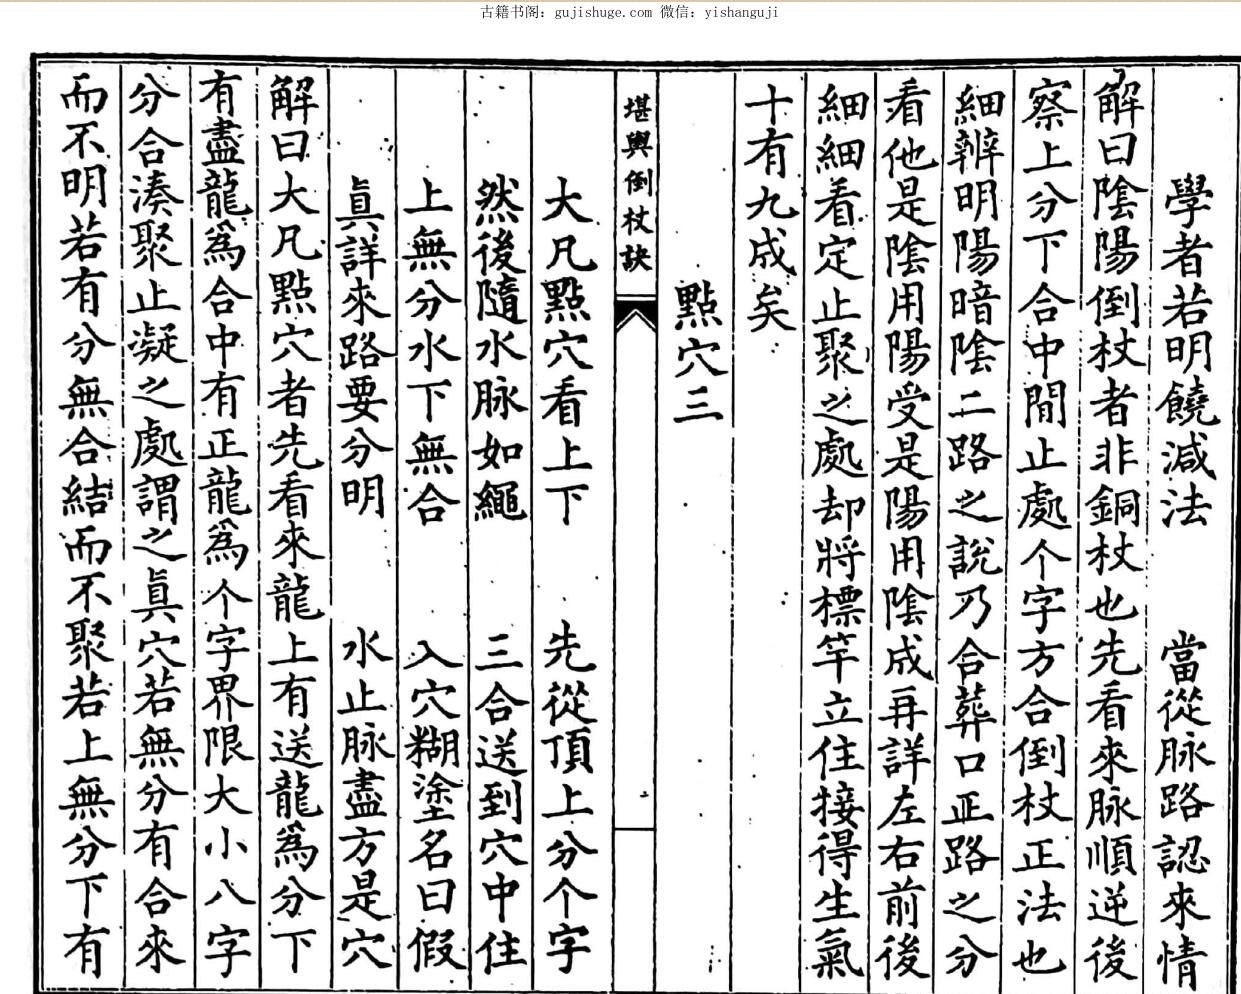 古籍书阁：gujishuge.com 微信：yishanguji
學者若明饒減法　當從脉路認來情
解曰陰陽倒杖者非銅杖也先看來脉順逆後
察上分下合中間止處个字方合倒杖正法也
細辨明陽暗陰二路之說乃合葬口正路之分
看他是陰用陽受是陽用陰成再詳左右前後
細細看定止聚之處却將標竿立住接得生氣
十有九成矣
點穴三
堪輿倒杖訣
大凡點穴看上下　先從頂上分个字
然後隨水脉如繩　三合送到穴中住
上無分水下無合　入穴糊塗名曰假
眞詳來路要分明　水止脉盡方是穴
解曰大凡點穴者先看來龍上有送龍爲分下
有盡龍爲合中有正龍爲个字界限大小八字
分合湊聚止凝之處謂之眞穴若無分有合來
而不明若有分無合結而不聚若上無分下有